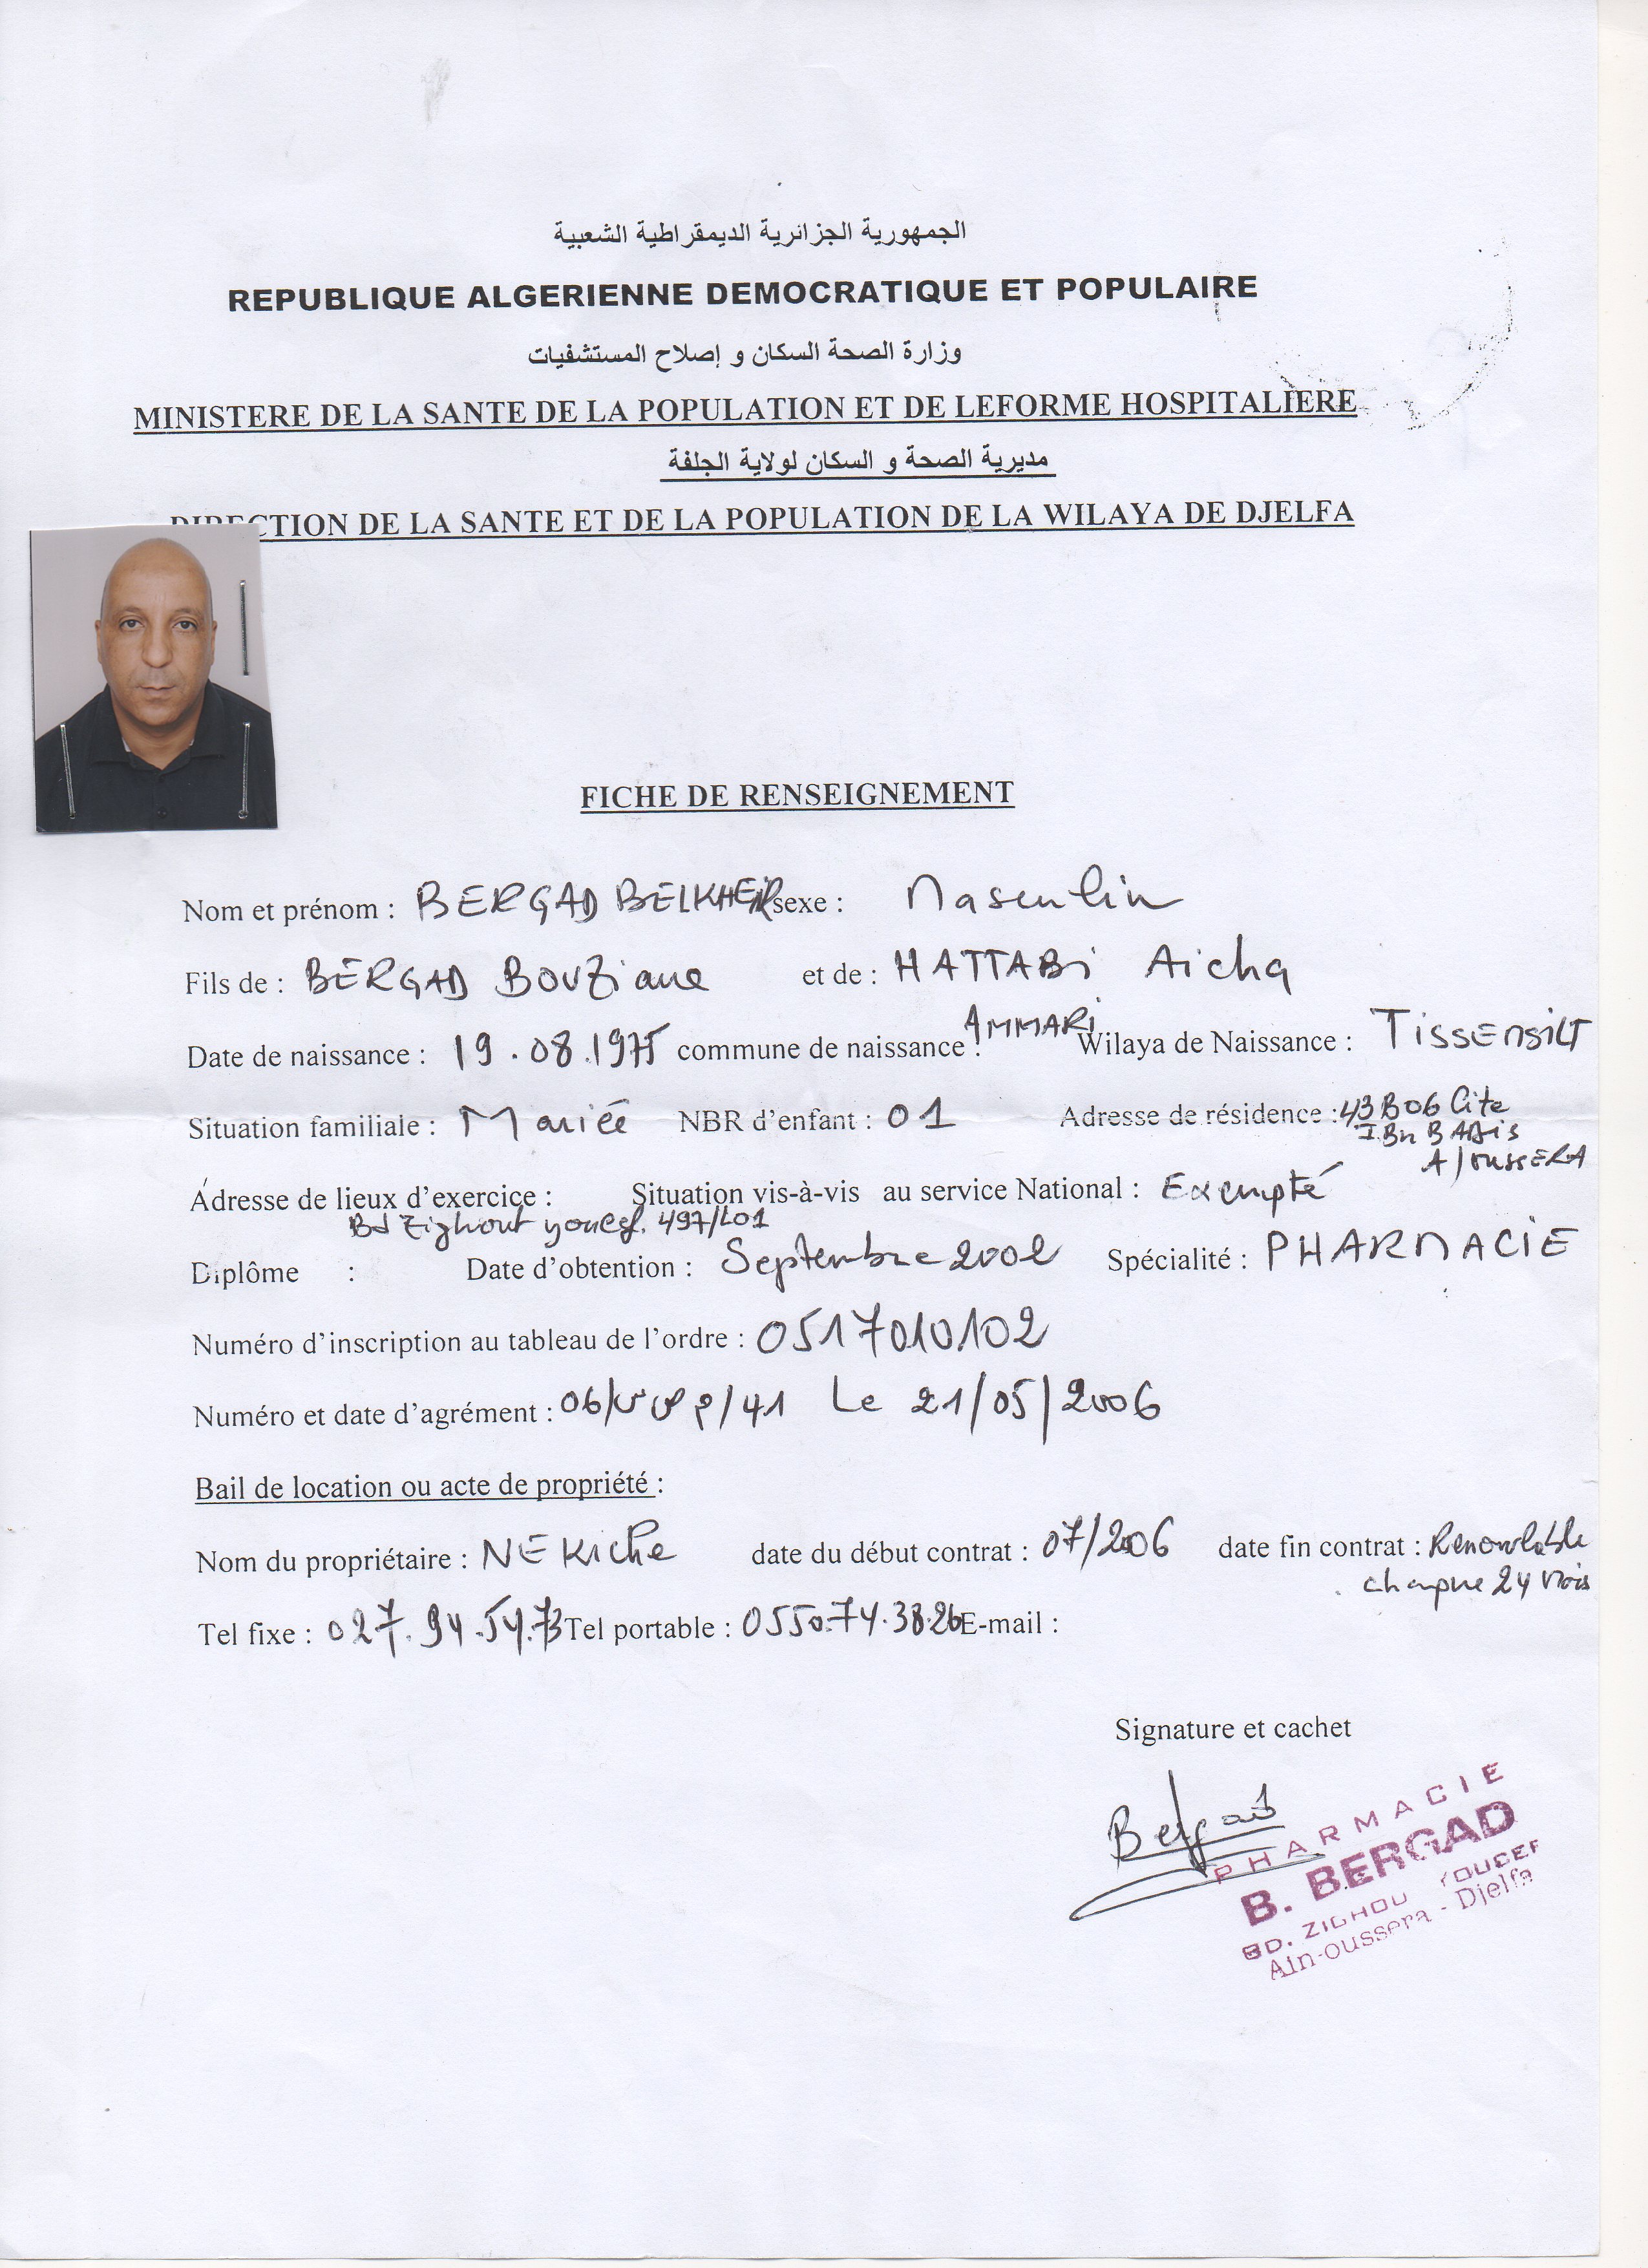 الجمهورية الجزائرية الديمقراطية الشعبية
REPUBLIQUE ALGERIENNE DEMOCRATIQUE ET POPULAIRE
وزارة الصحة السكان و إصلاح المستشفيات
MINISTERE DE LA SANTE DE LA POPULATION ET DE LEFORME HOSPITALIERE
مديرية الصحة و السكان لولاية الجلفة
DIRECTION DE LA SANTE ET DE LA POPULATION DE LA WILAYA DE DJELFA
FICHE DE RENSEIGNEMENT
Nom et prénom : BERGAD BELKHEIR sexe : Masculin
Fils de : BERGAD BOUZiane et de : HATTABi Aicha
Date de naissance : 19.08.1975 commune de naissance : AMMARi Wilaya de Naissance : TiSSEMSiLT
Situation familiale : Mariée NBR d'enfant : 01 Adresse de résidence : 43 B06 Cite
IBn BADis
A/OUSSERA
Adresse de lieux d'exercice : Situation vis-à-vis au service National : Exempté
Bd Zighout youcef. 497/L01
Diplôme : Date d'obtention : Septembre 2002 Spécialité : PHARMACIE
Numéro d'inscription au tableau de l'ordre : 0517010102
Numéro et date d'agrément : 06/ /41 Le 21/05/2006
Bail de location ou acte de propriété :
Nom du propriétaire : NEKICHE date du début contrat : 07/2006 date fin contrat : Renouvlable
chaque 24 Mois
Tel fixe : 027.94.54.73 Tel portable : 0550.74.38.26 E-mail :
Signature et cachet
Bergad
PHARMACIE
B. BERGAD
BD. ZIGHOU YOUCEF
Ain-oussera - Djelfa